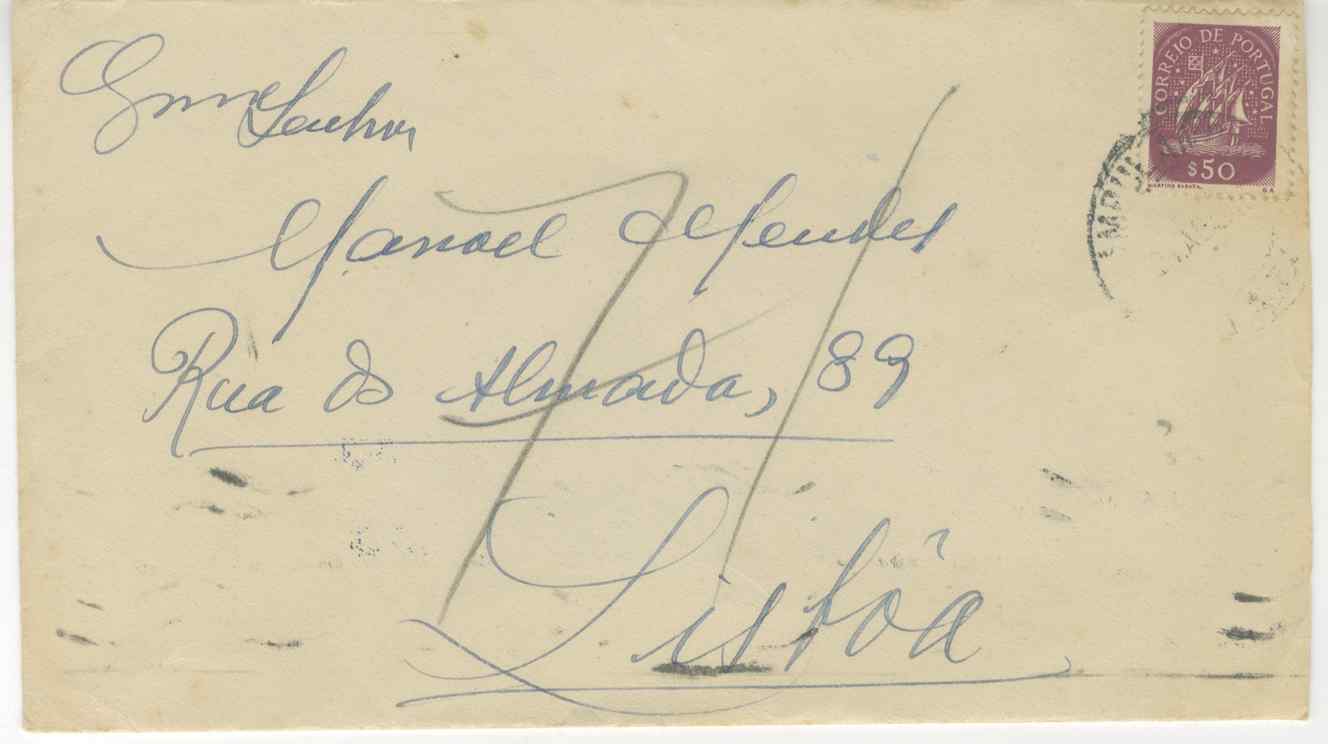 Exmo Senhor
Manoel Mendes
Rua do Almada, 89
Lisbôa
CORREIO DE PORTUGAL
$50
MARTINS BARATA